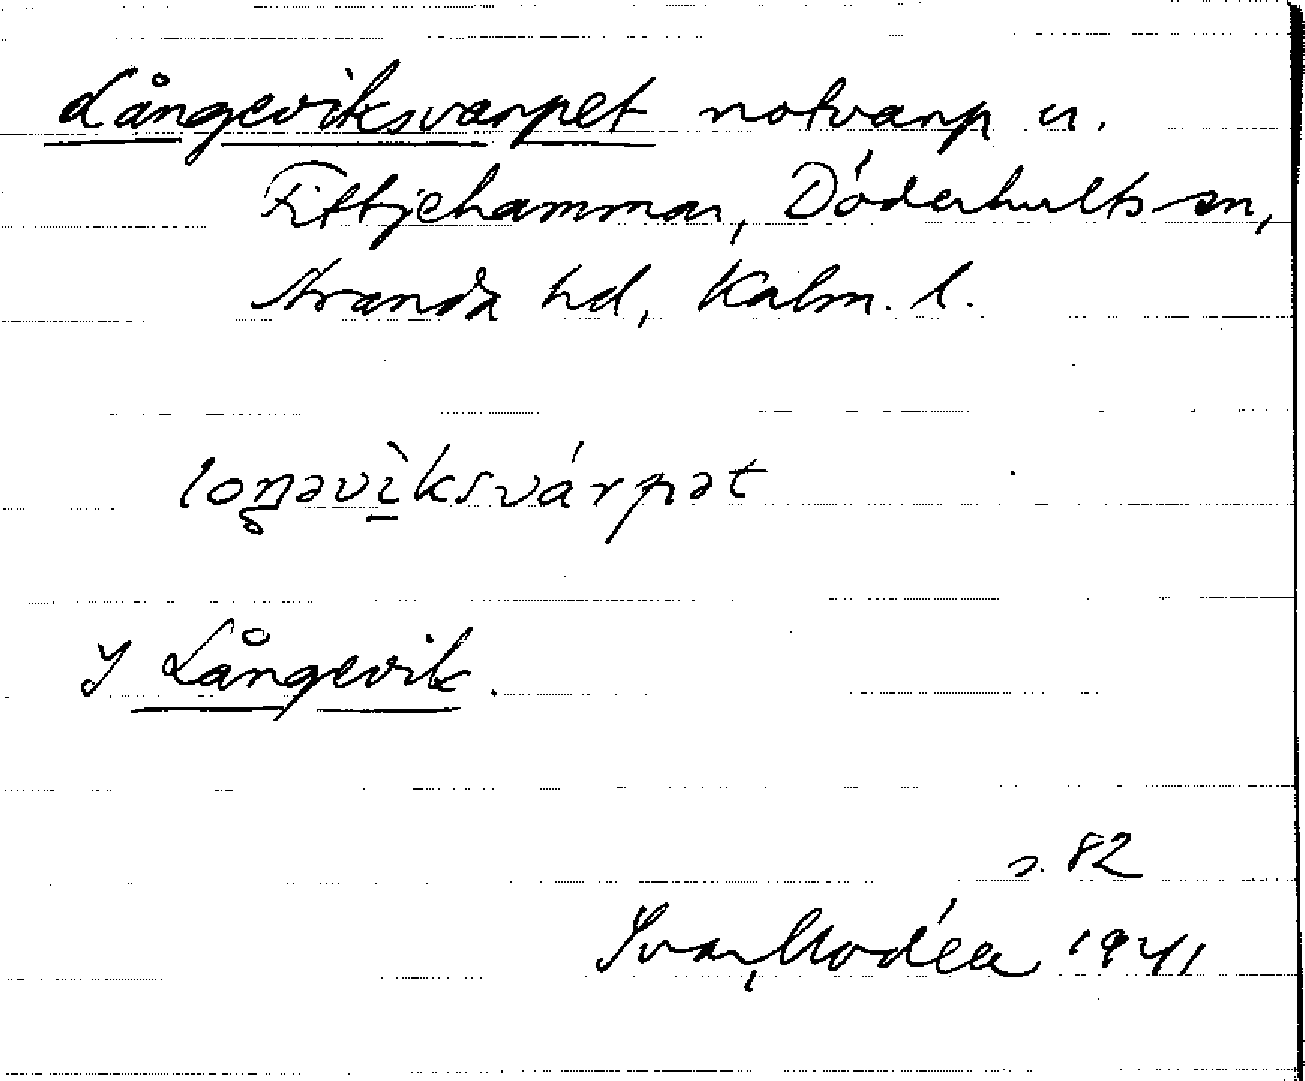 Långeviksvarpet notvarp u.
Fittjehammar, Döderhults sn,
Stranda hd, Kalm. l.
loŋəvìksvárpət
I Långevik.
s. 82
Ivar Modéer 1941